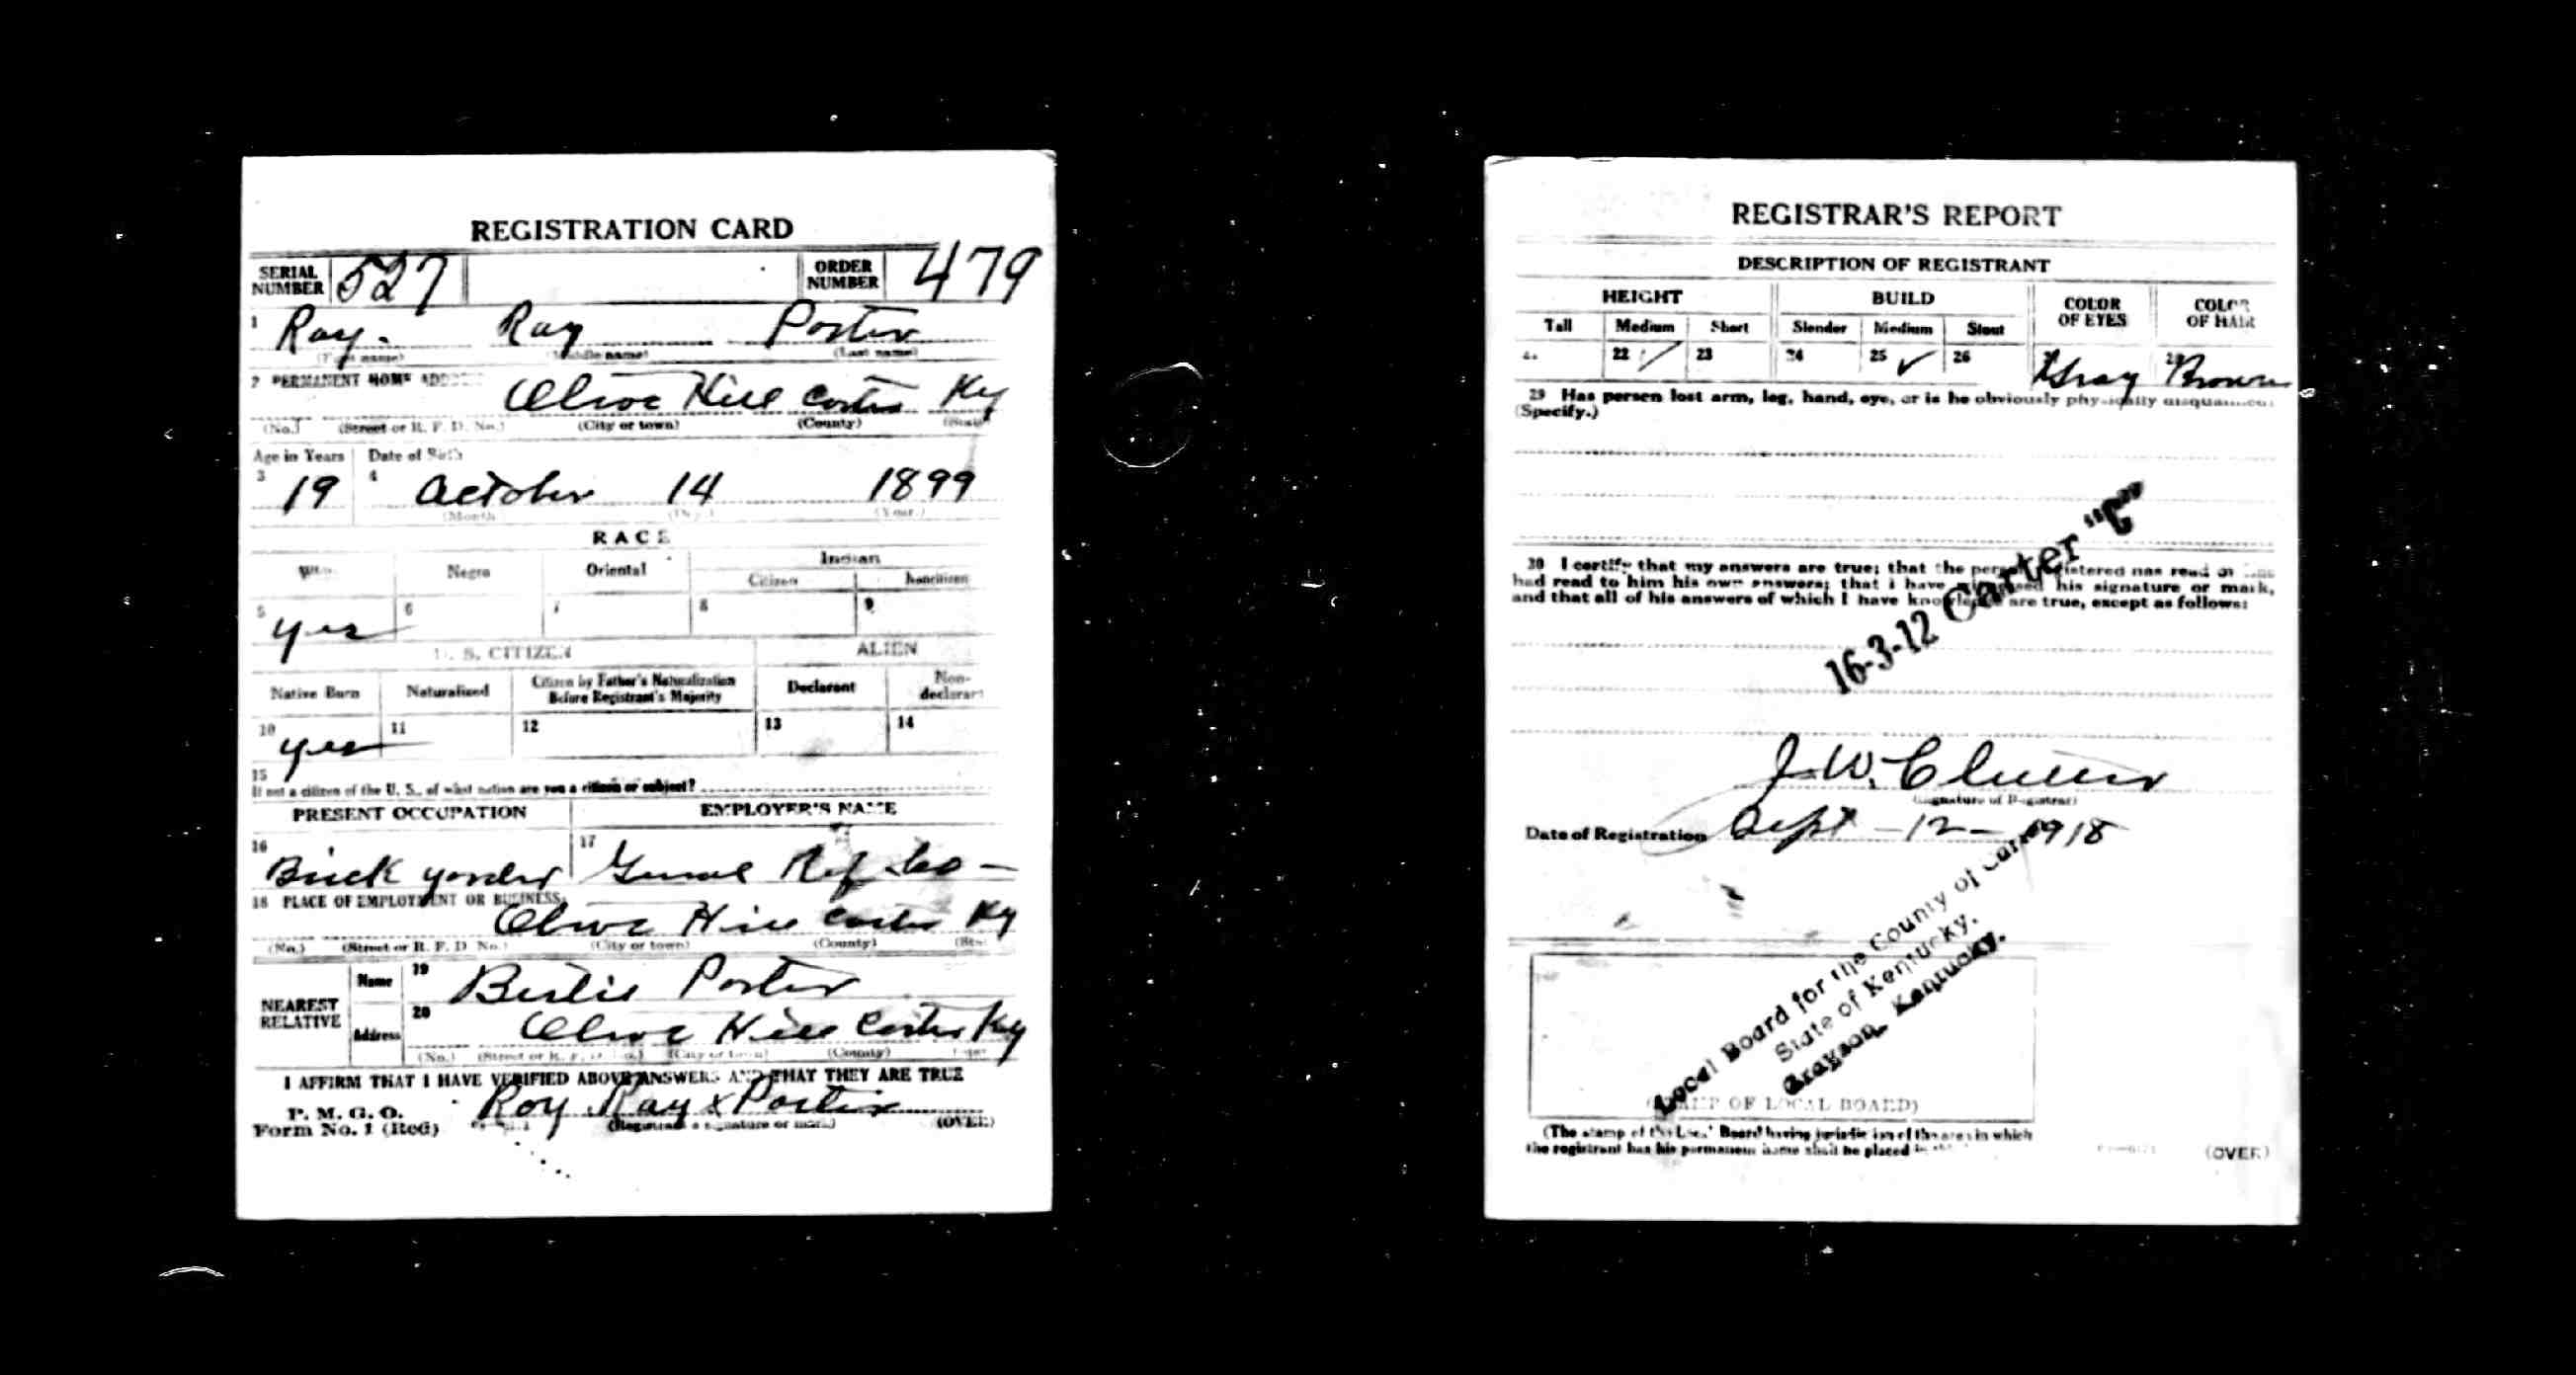 REGISTRATION CARD
SERIAL NUMBER 527 ORDER NUMBER 479
1 Roy. Ray Porter
(First name) (Middle name) (Last name)
2 PERMANENT HOME ADDRESS
Olive Hill Carter Ky
(No.) (Street or R. F. D. No.) (City or town) (County) (State)
Age in Years Date of Birth
3 19 4 October 14 1899
(Month) (Day) (Year.)
RACE
White Negro Oriental Indian
Citizen Noncitizen
5 yes 6 7 8 9
U. S. CITIZEN ALIEN
Native Born Naturalized Citizen by Father's Naturalization Before Registrant's Majority Declarant Non-declarant
10 yes 11 12 13 14
15
If not a citizen of the U. S., of what nation are you a citizen or subject?
PRESENT OCCUPATION EMPLOYER'S NAME
16 Brick yarder 17 Ref. Co -
18 PLACE OF EMPLOYMENT OR BUSINESS
Olive Hill Carter Ky
(No.) (Street or R. F. D. No.) (City or town) (County) (State)
NEAREST RELATIVE
Name 19 Porter
Address 20 Olive Hill Carter Ky
(No.) (Street or R. F. D. No.) (City or town) (County) (State)
I AFFIRM THAT I HAVE VERIFIED ABOVE ANSWERS AND THAT THEY ARE TRUE
P. M. G. O.
Form No. 1 (Red)
Roy Ray x Porter
(Registrant's signature or mark) (OVER)
REGISTRAR'S REPORT
DESCRIPTION OF REGISTRANT
HEIGHT BUILD COLOR OF EYES COLOR OF HAIR
Tall Medium Short Slender Medium Stout
21 22 ✓ 23 24 25 ✓ 26 27 Gray 28 Brown
29 Has person lost arm, leg, hand, eye, or is he obviously physically disqualified?
(Specify.)
30 I certify that my answers are true; that the person registered has read or has
had read to him his own answers; that I have witnessed his signature or mark,
and that all of his answers of which I have knowledge are true, except as follows:
16-3-12 Carter "C"
J. W.
(Signature of Registrar)
Date of Registration Sept - 12 - 1918
Local Board for the County of Carter
State of Kentucky.
Grayson, Kentucky.
(STAMP OF LOCAL BOARD)
(The stamp of the Local Board having jurisdiction of the area in which
the registrant has his permanent home shall be placed in this
(OVER)